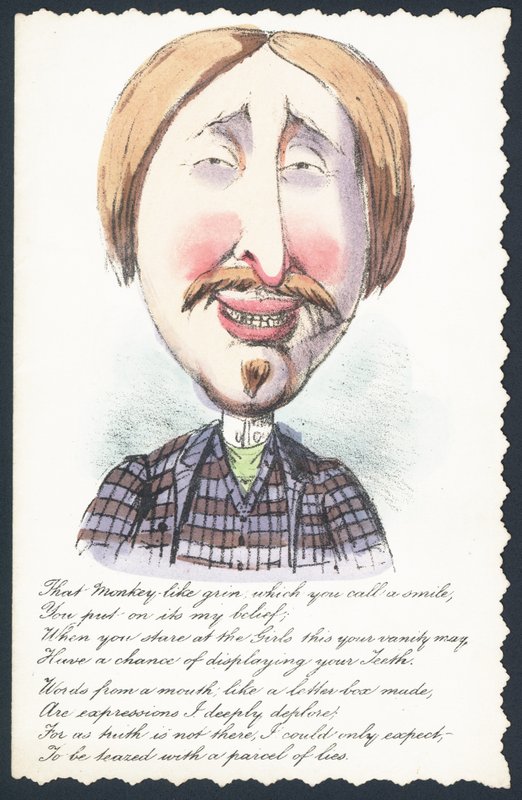 That Monkey like grin, which you call a smile,
You put on its my belief;
When you stare at the Girls this your vanity may,
Have a chance of displaying your Teeth.
Words from a mouth, like a letter box made,
Are expressions I deeply deplore;
For as truth is not there, I could only expect,-
To be teazed with a parcel of lies.